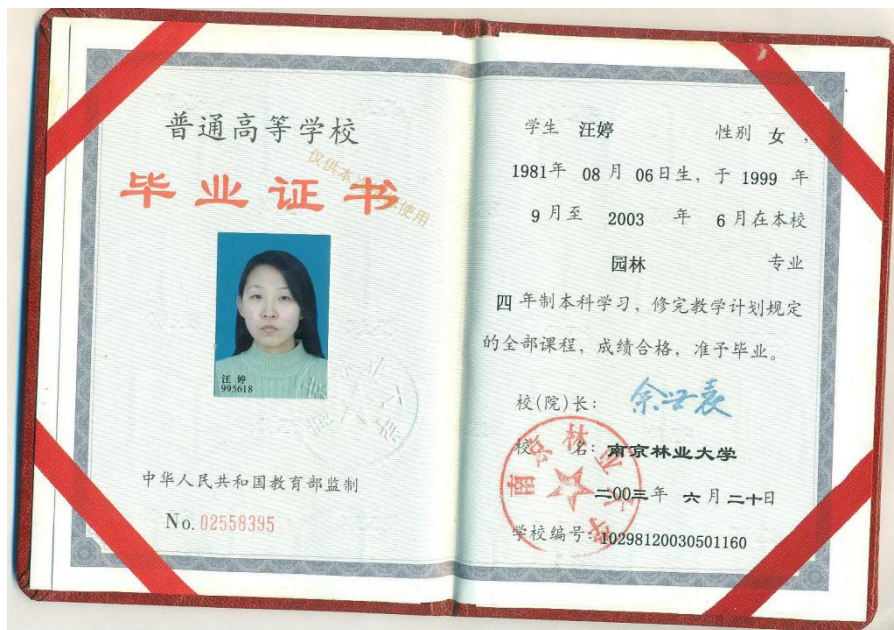 普通高等学校
毕业证书
仅供本次
使用
汪婷
995618
中华人民共和国教育部监制
No. 02558395
学生 汪婷 性别 女,
1981年 08月 06日生,于 1999 年
9月至 2003 年 6月在本校
园林 专业
四 年制本科学习,修完教学计划规定
的全部课程,成绩合格,准予毕业。
校(院)长:
校 名:南京林业大学
二00三年 六月二十日
学校编号:10298120030501160
南京林业大学